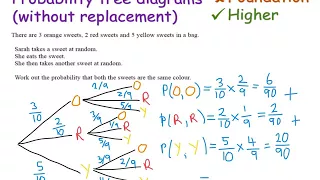 Probability tree diagrams
(without replacement)
✗ Foundation
✓ Higher
There are 3 orange sweets, 2 red sweets and 5 yellow sweets in a bag.
Sarah takes a sweet at random.
She eats the sweet.
She then takes another sweet at random.
Work out the probability that both the sweets are the same colour.
3/10 O 2/9 O
2/9 R
Y
2/10 R 3/9 O
1/9 R
Y
5/10 Y 3/9 O
R
P(O,O) = 3/10 × 2/9 = 6/90 +
P(R,R) = 2/10 × 1/9 = 2/90 +
P(Y,Y) = 5/10 × 4/9 = 20/90